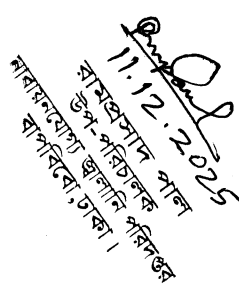 11.12.2025
রামপ্রসাদ পাল
উপ-পরিচালক
নবায়নযোগ্য জ্বালানি পরিদপ্তর
বাপবিবো, ঢাকা।